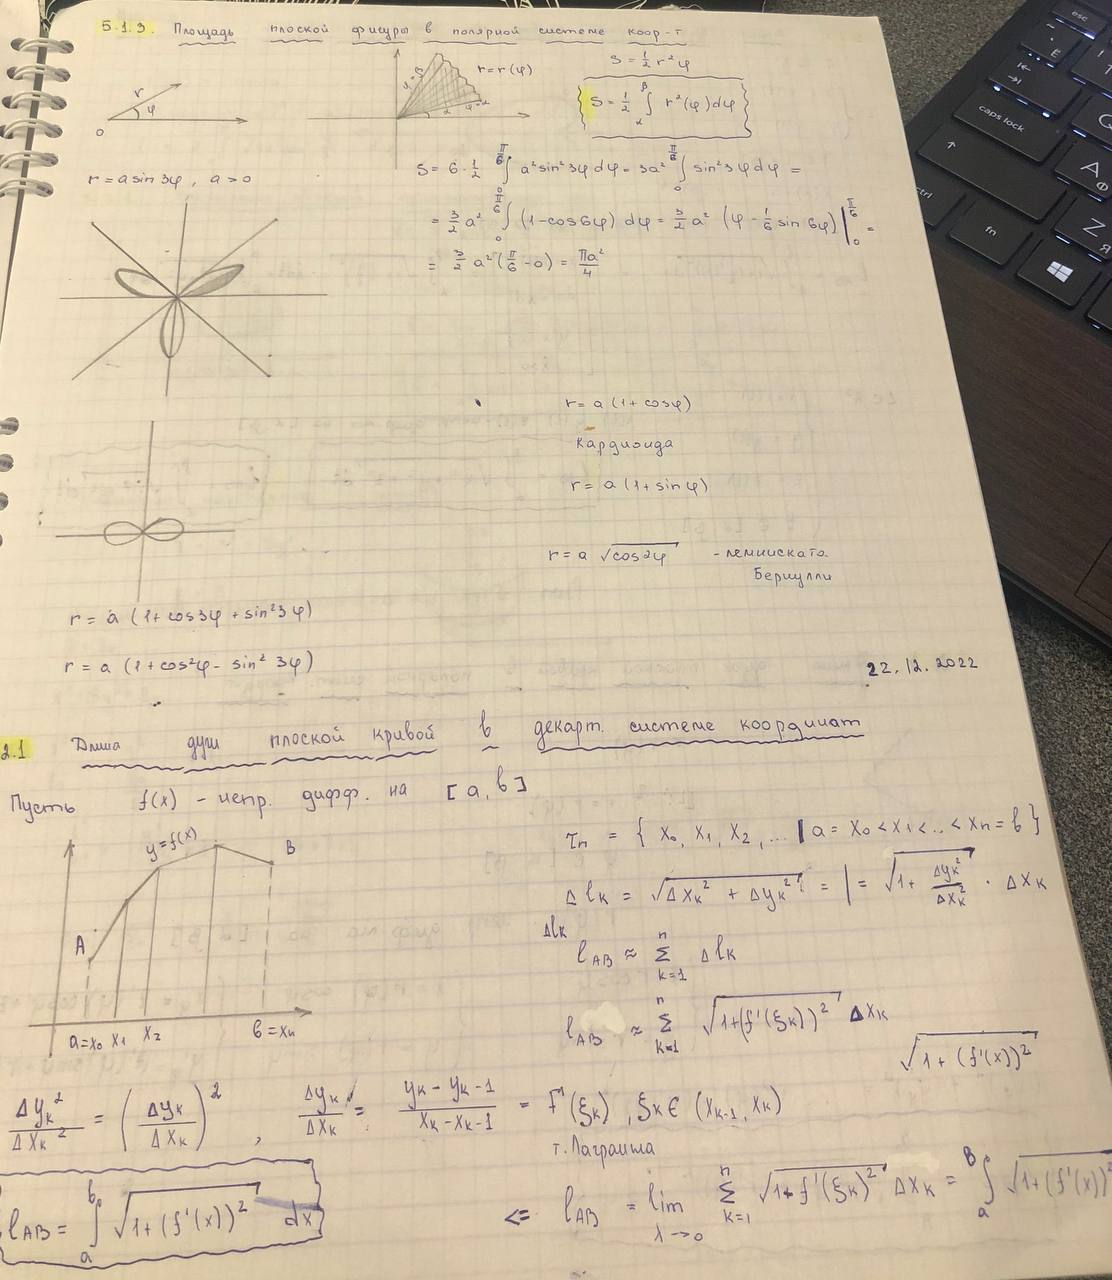 5.1.3. Площадь плоской фигуры в полярной системе коор-т
r
φ
0
r = r(φ)
φ=β
φ=α
α
S = 1/2 r²φ
S = 1/2 ∫_α^β r²(φ)dφ
r = a sin 3φ, a > 0
S = 6 · 1/2 ∫_0^{π/6} a² sin² 3φ dφ = 3a² ∫_0^{π/6} sin² 3φ dφ =
= 3/2 a² ∫_0^{π/6} (1 - cos6φ) dφ = 3/2 a² (φ - 1/6 sin 6φ) |_0^{π/6} =
= 3/2 a² (π/6 - 0) = πa²/4
r = a (1 + cosφ)
Кардиоида
r = a (1 + sinφ)
r = a √cos2φ - лемниската
Бернулли
r = a (1 + cos3φ + sin²3φ)
r = a (1 + cos²φ - sin² 3φ)
22.12.2022
2.1 Длина дуги плоской кривой в декарт. системе координат
Пусть f(x) - непр. дифф. на [a, b]
y = f(x)
A
B
a=x₀ x₁ x₂ b = xₙ
τₙ = { x₀, x₁, x₂, ... | a = x₀ < x₁ < .. < xₙ = b }
Δlₖ = √(Δxₖ² + Δyₖ²) = | = √(1 + Δyₖ²/Δxₖ²) · Δxₖ
Δlₖ
l_AB ≈ Σ_{k=1}^n Δlₖ
l_AB ≈ Σ_{k=1}^n √(1+(f'(ξₖ))²) Δxₖ
√(1 + (f'(x))²)
Δyₖ²/Δxₖ² = (Δyₖ/Δxₖ)², Δyₖ/Δxₖ = (yₖ - yₖ₋₁)/(xₖ - xₖ₋₁) = f'(ξₖ), ξₖ ∈ (xₖ₋₁, xₖ)
т. Лагранжа
l_AB = ∫_a^b √(1 + (f'(x))²) dx
<= l_AB = lim_{λ→0} Σ_{k=1}^n √(1 + f'(ξₖ)²) Δxₖ = ∫_a^B √(1 + (f'(x))²
esc
caps lock
fn
Ф
A
Z
Я